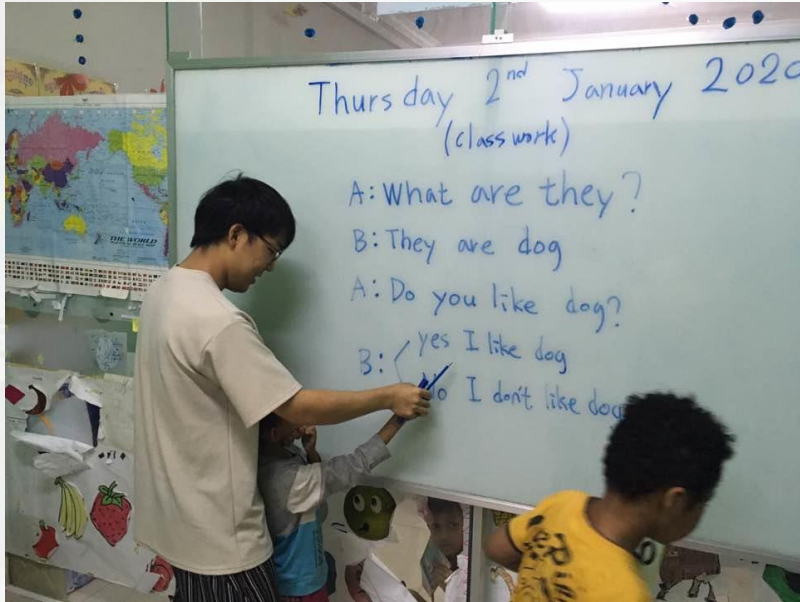 Thursday 2nd January 2020
(class work)
A: What are they?
B: They are dog
A: Do you like dog?
B: yes I like dog
No I don't like dog
THE WORLD